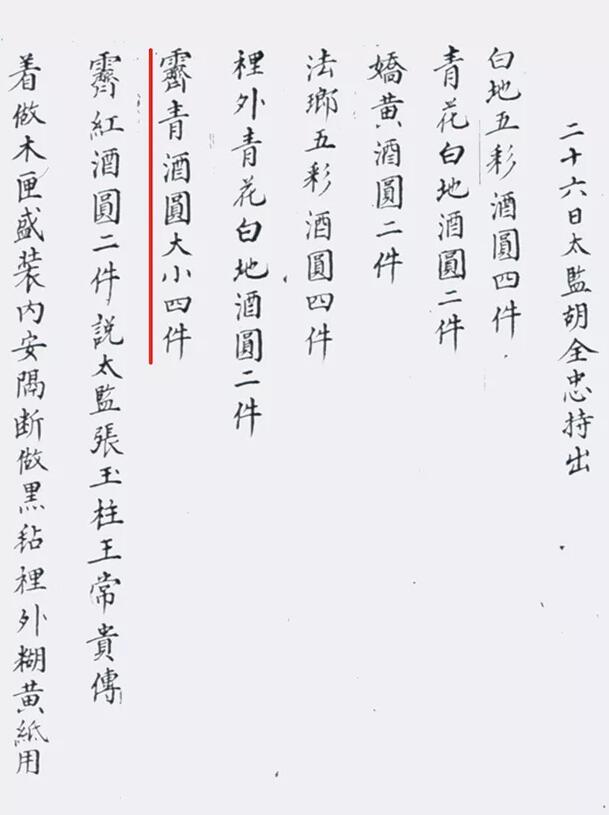 二十六日太監胡全忠持出
白地五彩酒圓四件
青花白地酒圓二件
嬌黃酒圓二件
法瑯五彩酒圓四件
裡外青花白地酒圓二件
霽青酒圓大小四件
霽紅酒圓二件說太監張玉柱王常貴傳
着做木匣盛裝內安隔斷做黑毡裡外糊黃紙用